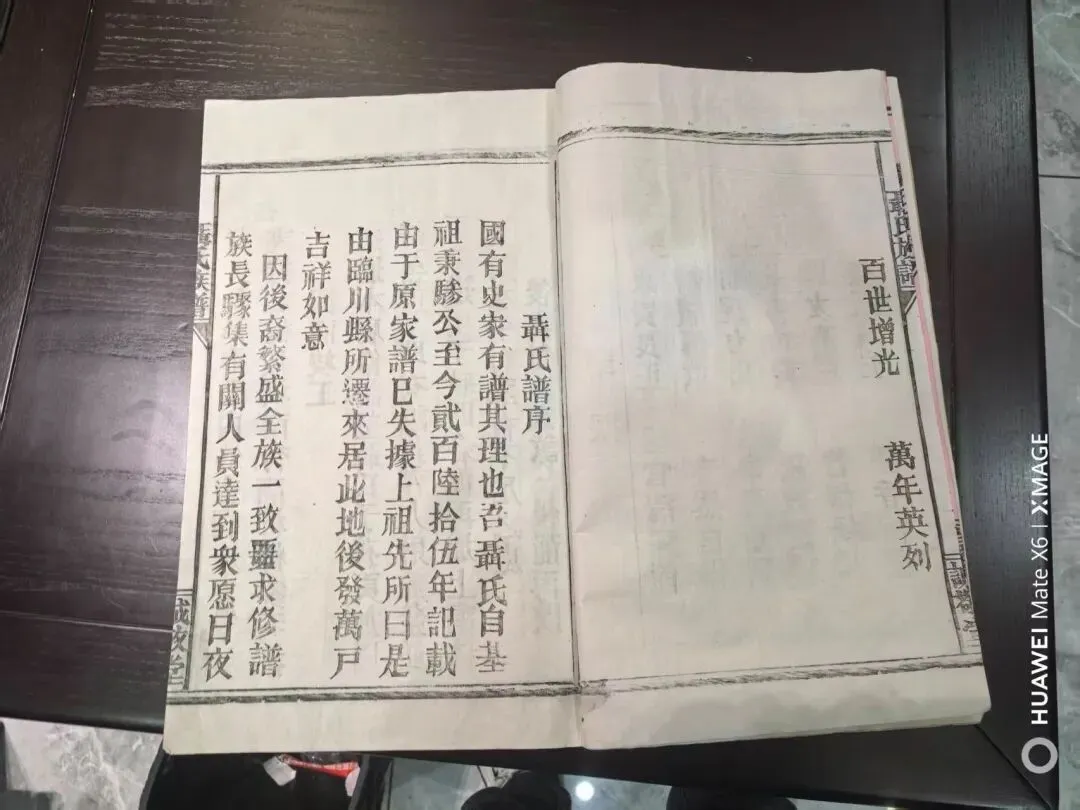 聶氏族譜
百世增光
萬年英列
聶氏譜序
國有史家有譜其理也吾聶氏自基
祖秉驂公至今貳百陸拾伍年記載
由于原家譜已失據上祖先所曰是
由臨川縣所遷來居此地後發萬戸
吉祥如意
因後裔繁盛全族一致要求修譜
族長驟集有關人員達到衆愿日夜
氏族譜
誠敬堂
HUAWEI Mate X6 | XMAGE